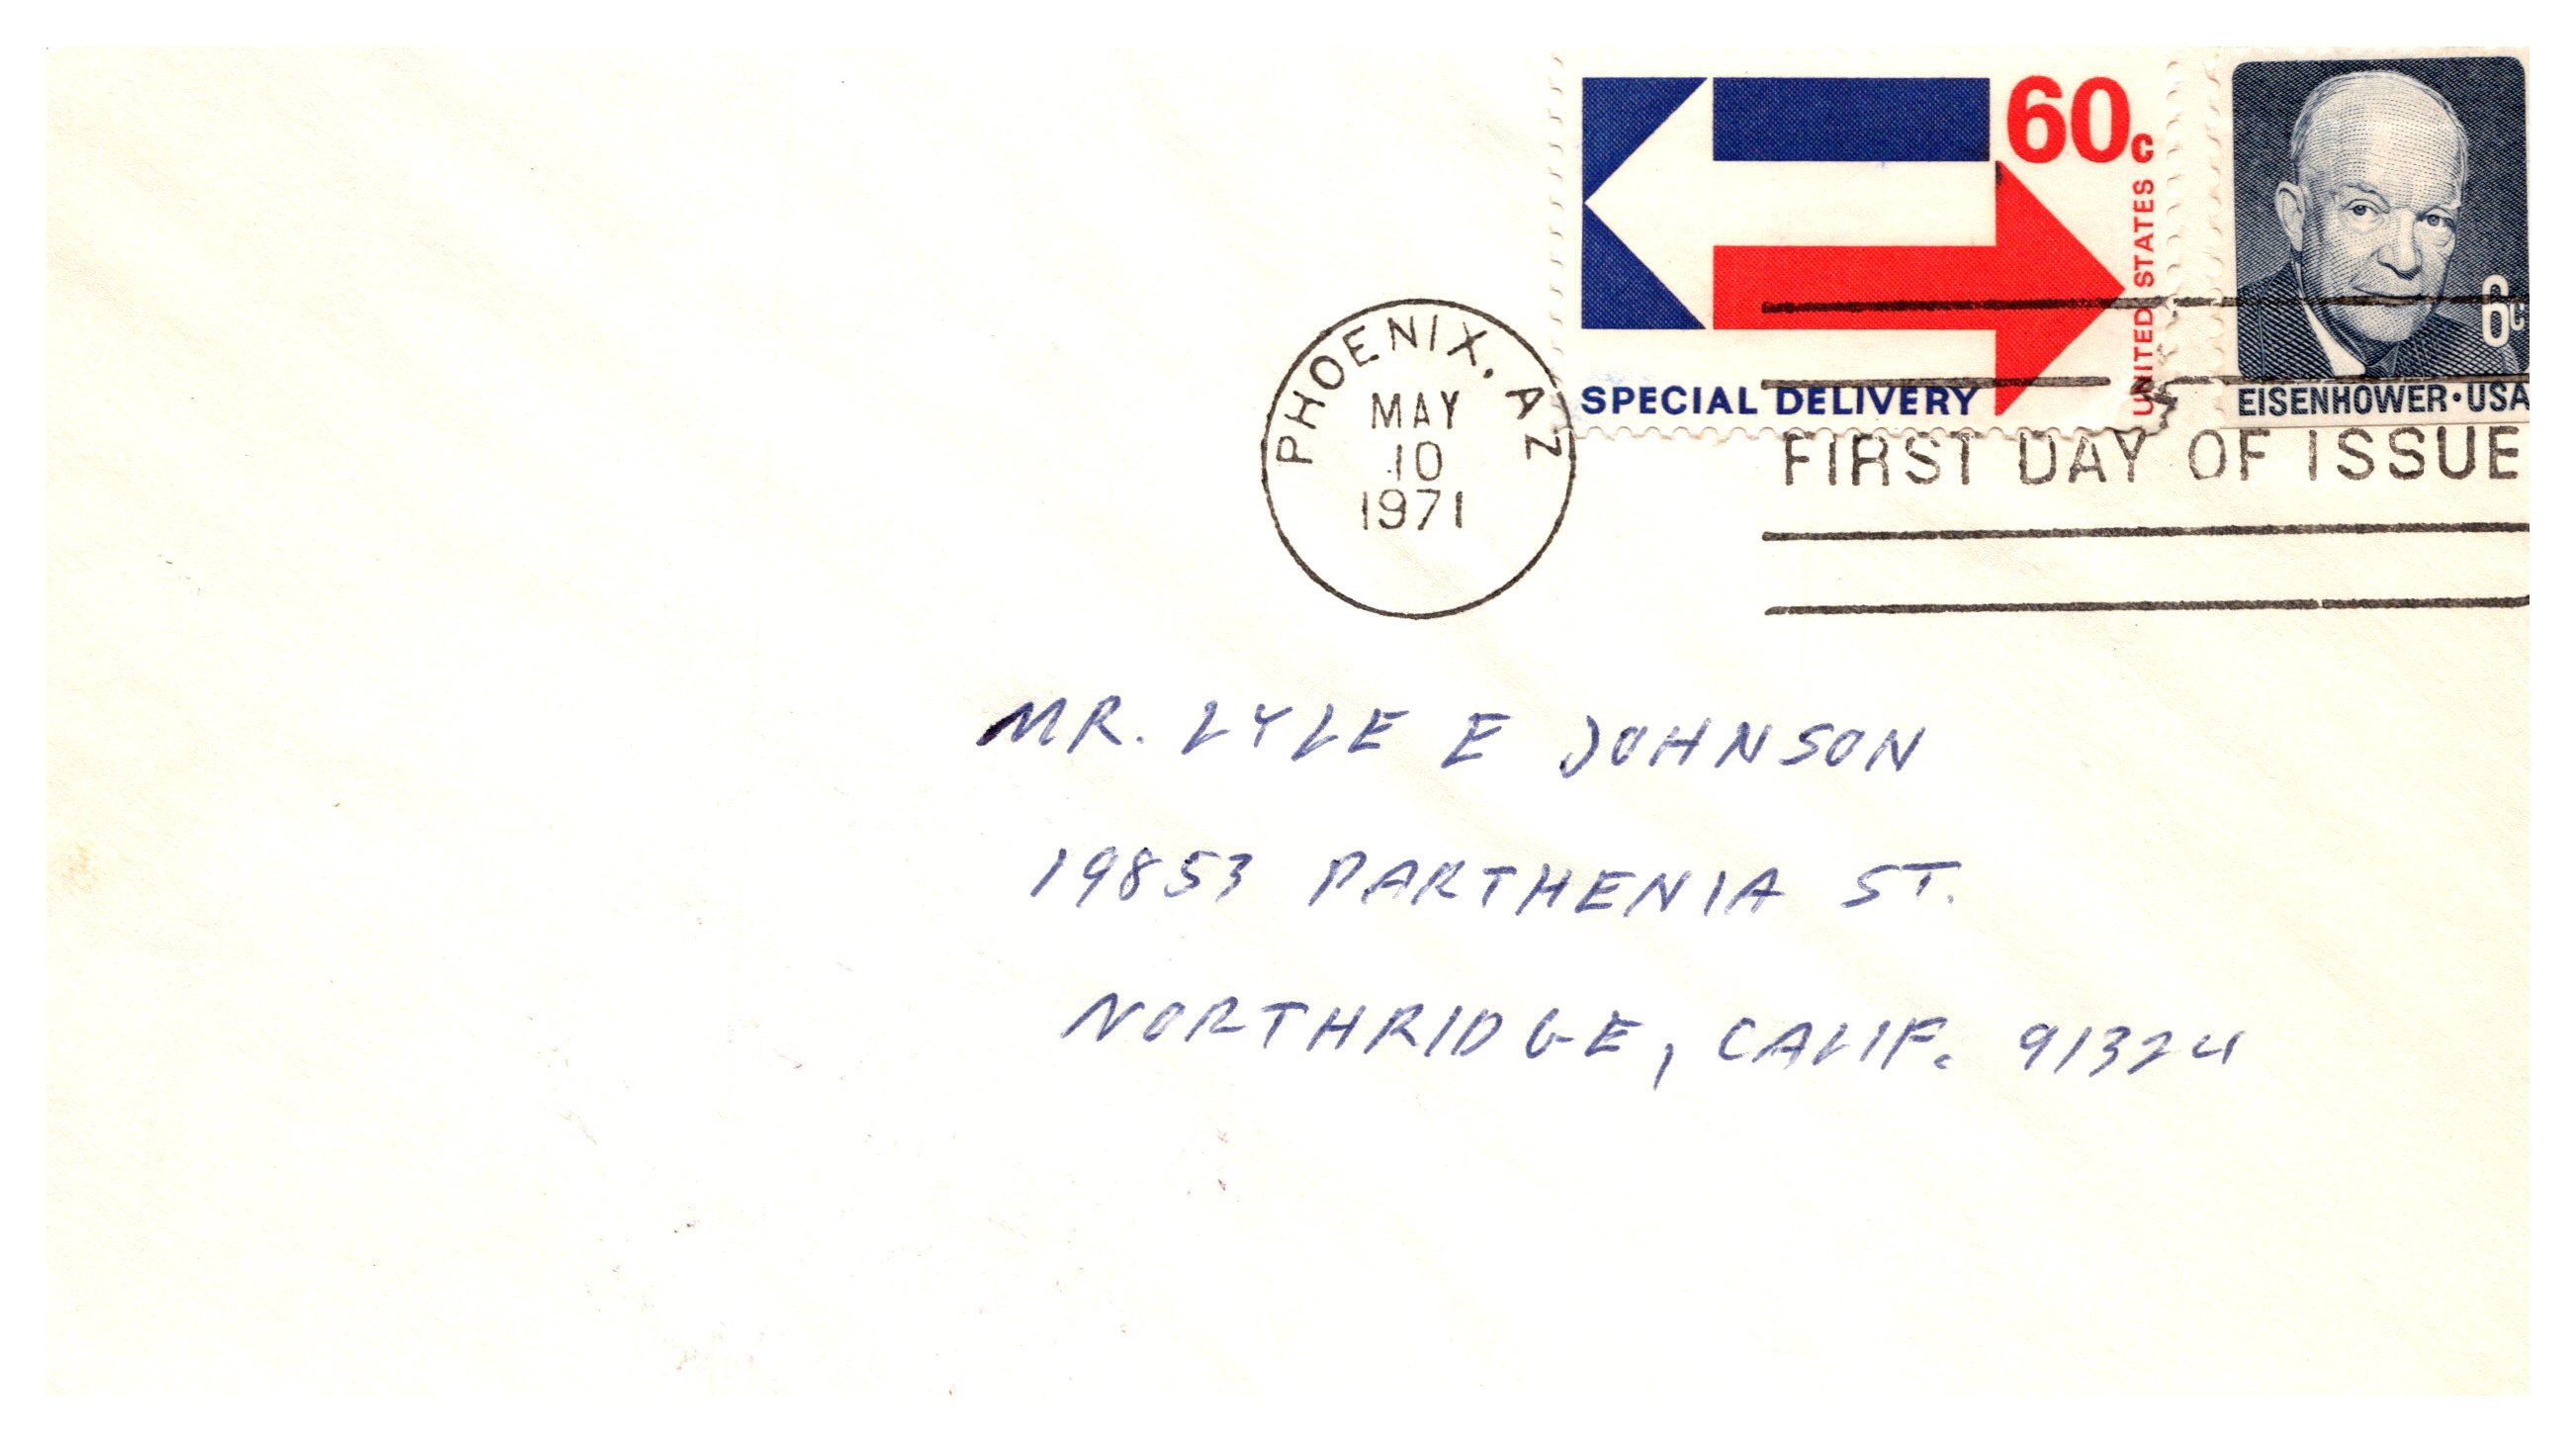 60c
UNITED STATES
SPECIAL DELIVERY
6c
EISENHOWER·USA
PHOENIX, AZ
MAY
10
1971
FIRST DAY OF ISSUE
MR. LYLE E JOHNSON
19853 PARTHENIA ST.
NORTHRIDGE, CALIF. 91324